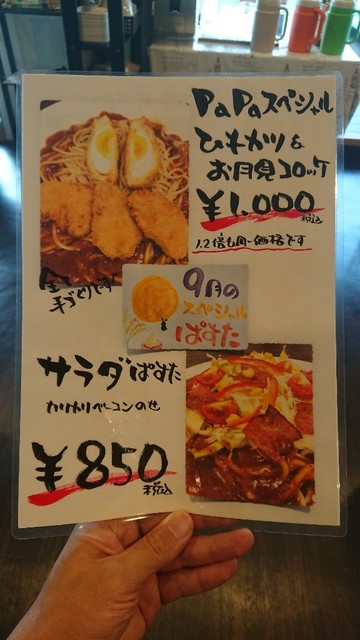 PaPaスペシャル
ひれカツ&
お月見コロッケ
¥1,000
税込
1.2倍も同一価格です
全て
手づくりです
9月の
スペシャル
ぱすた
サラダぱすた
カリカリベーコンのせ
¥850
税込